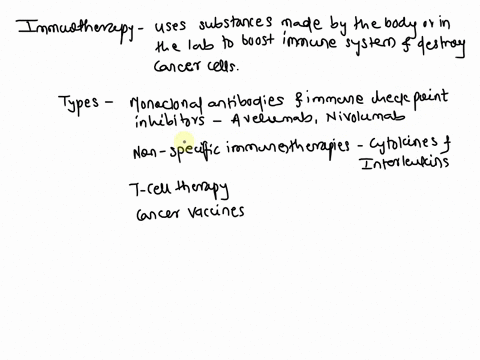 Immunotherapy - uses substances made by the body or in
the lab to boost immune system & destroy
cancer cells.
Types - Monoclonal antibodies & immune check point
inhibitors - Avelumab, Nivolumab
Non-specific immunotherapies - Cytokines &
Interleukins
T-cell therapy
Cancer vaccines